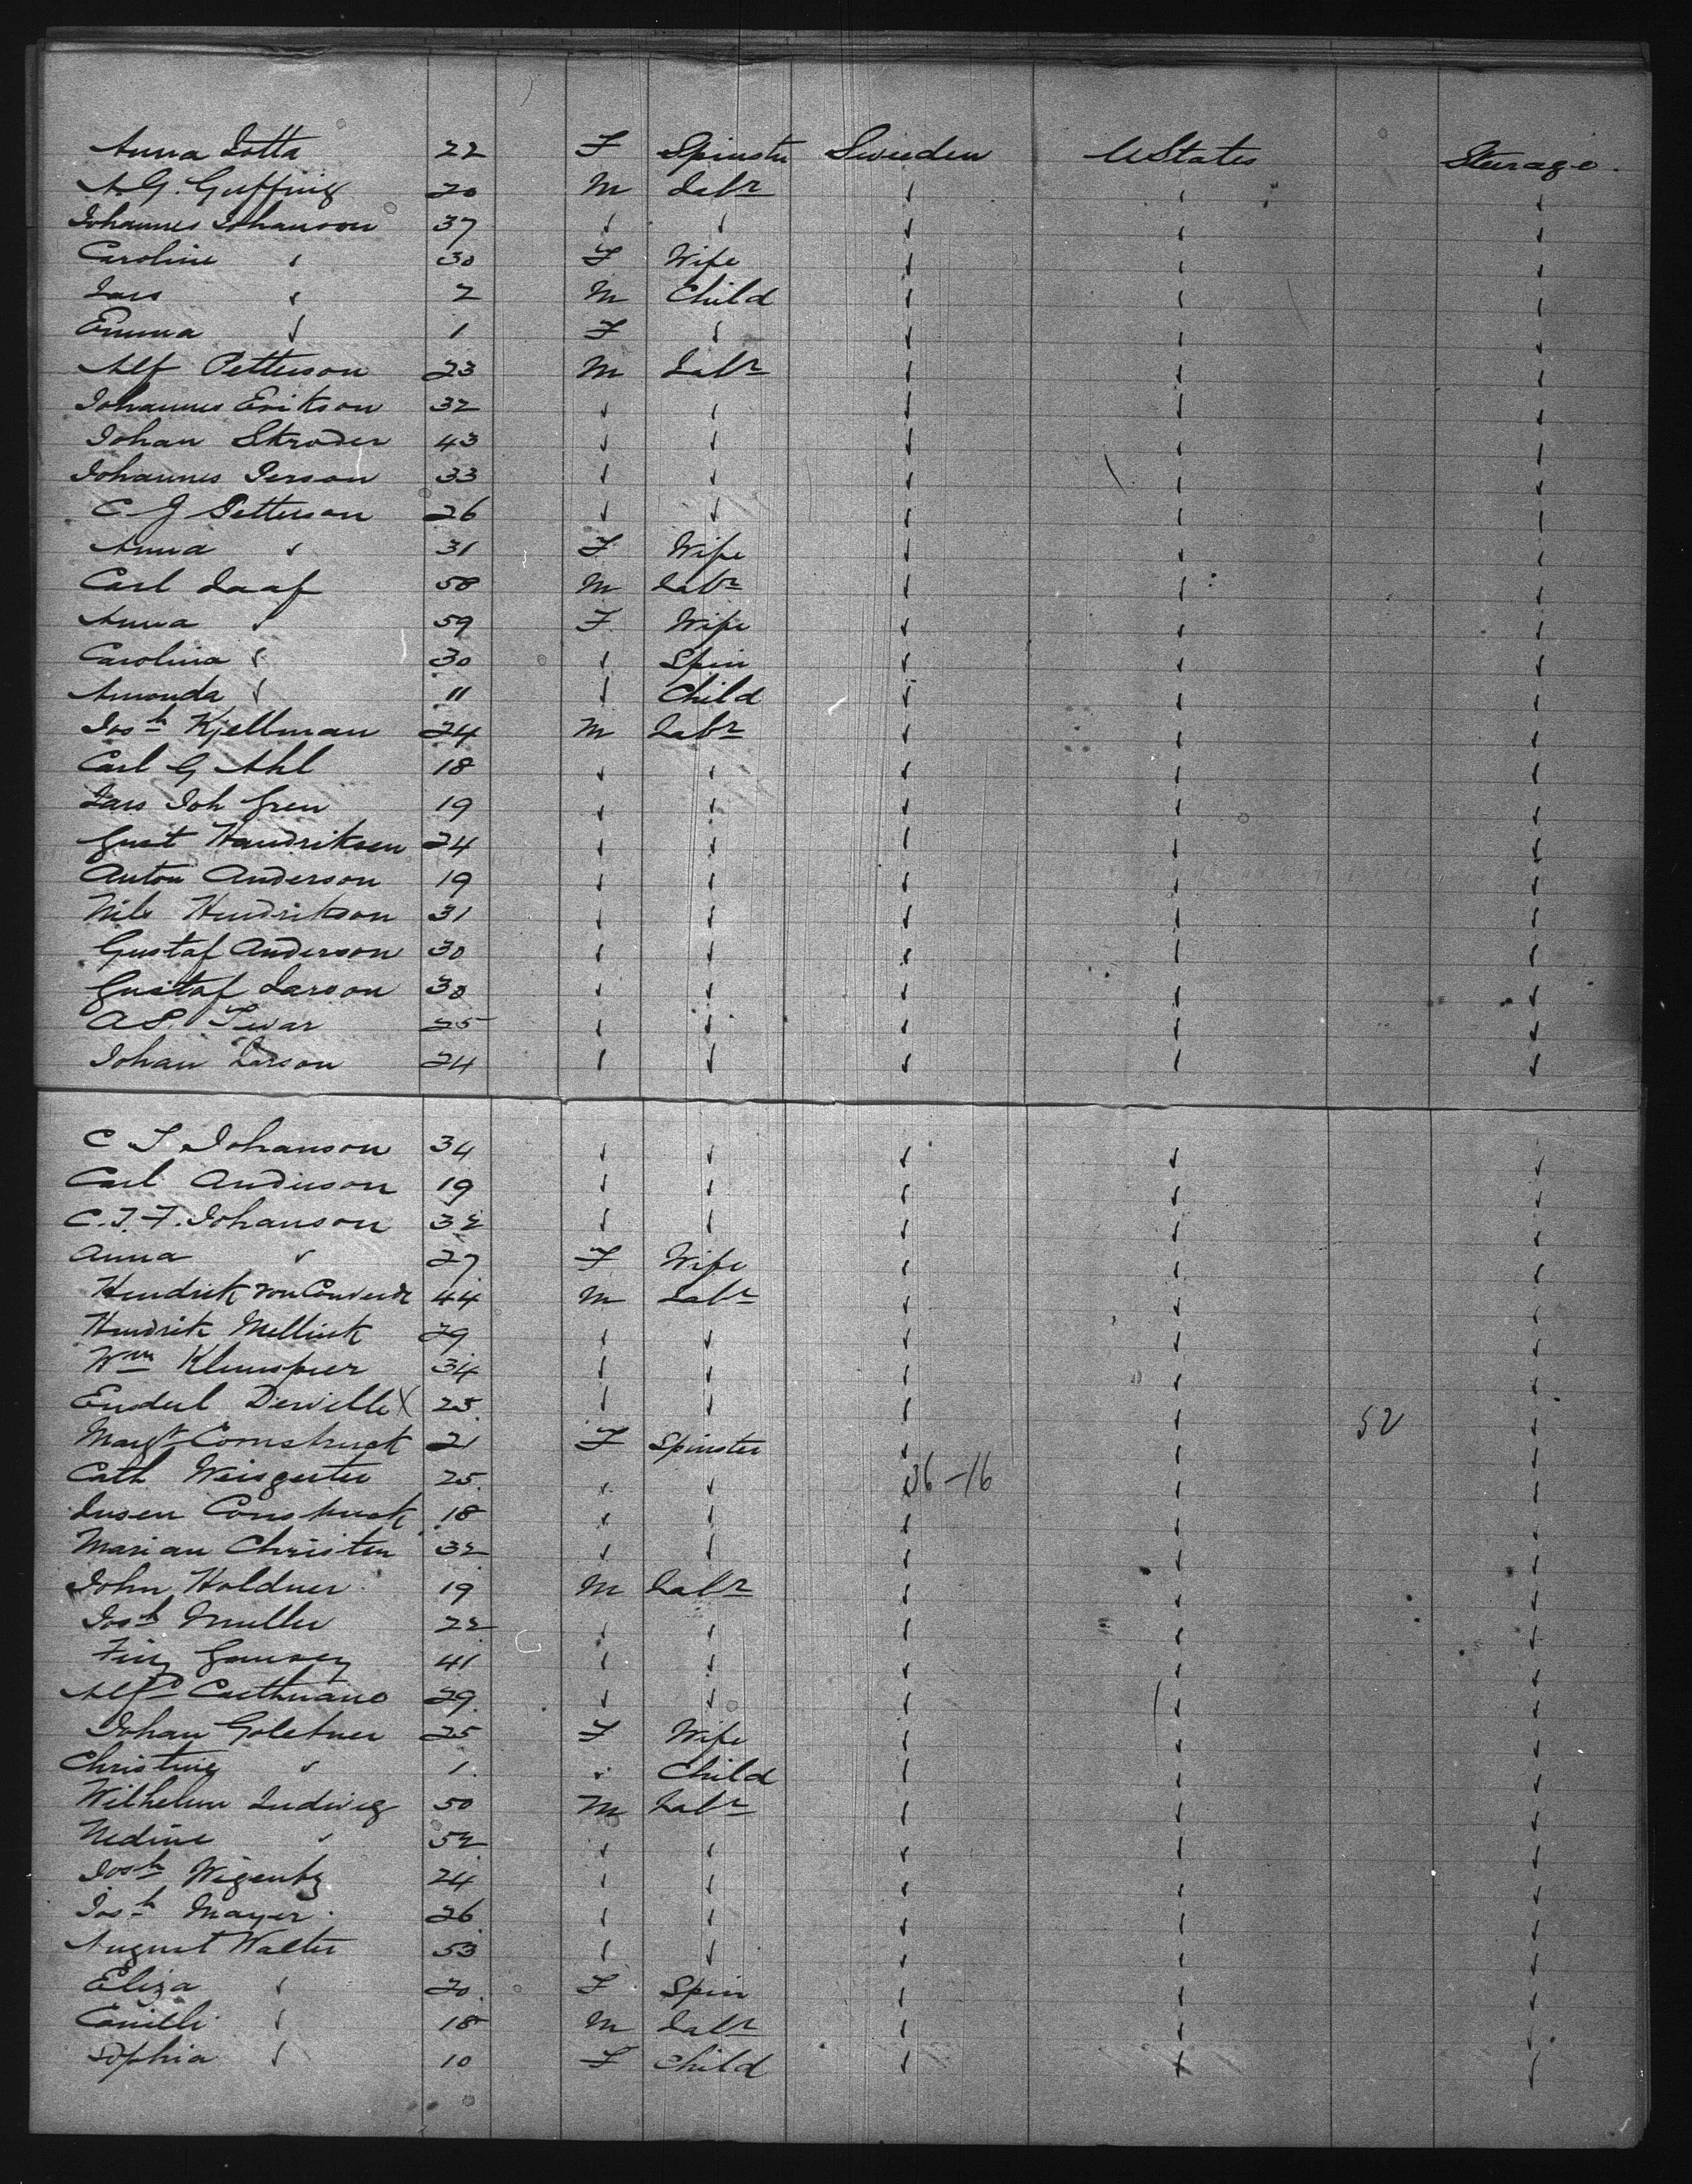 Anna Lotta 22 F Spinstr Sweden UStates Steerage.
A.G. Guffing 20 M Labr ✓ ✓ ✓
Johannes Johanson 37 ✓ ✓ ✓ ✓ ✓
Caroline ✓ 30 F Wife ✓ ✓ ✓
Lars ✓ 2 M Child ✓ ✓ ✓
Emma ✓ 1 F ✓ ✓ ✓ ✓
Alf Petterson 23 M Labr ✓ ✓ ✓
Johannes Erikson 32 ✓ ✓ ✓ ✓ ✓
Johan Skroder 43 ✓ ✓ ✓ ✓ ✓
Johannes Person 33 ✓ ✓ ✓ ✓ ✓
C J Petterson 26 ✓ ✓ ✓ ✓ ✓
Anna ✓ 31 F Wife ✓ ✓ ✓
Carl Laaf 58 M Labr ✓ ✓ ✓
Anna ✓ 59 F Wife ✓ ✓ ✓
Carolina ✓ 30 ✓ Spin ✓ ✓ ✓
Amonda ✓ 11 ✓ Child ✓ ✓ ✓
Josh Kjellman 24 M Labr ✓ ✓ ✓
Carl G Ahl 18 ✓ ✓ ✓ ✓ ✓
Lars Joh Gren 19 ✓ ✓ ✓ ✓ ✓
Gust Handriksen 24 ✓ ✓ ✓ ✓ ✓
Anton Anderson 19 ✓ ✓ ✓ ✓ ✓
Nils Hendrikson 31 ✓ ✓ ✓ ✓ ✓
Gustaf Anderson 30 ✓ ✓ ✓ ✓ ✓
Gustaf Larson 30 ✓ ✓ ✓ ✓ ✓
A.P. 25 ✓ ✓ ✓ ✓ ✓
Johan Larson 24 ✓ ✓ ✓ ✓ ✓
C J Johanson 34 ✓ ✓ ✓ ✓ ✓
Carl Anderson 19 ✓ ✓ ✓ ✓ ✓
C.J.F. Johanson 32 ✓ ✓ ✓ ✓ ✓
Anna ✓ 27 F Wife ✓ ✓ ✓
Hendrik von 44 M Labr ✓ ✓ ✓
Hendrik Mellink 29 ✓ ✓ ✓ ✓ ✓
Wm Klumpier 34 ✓ ✓ ✓ ✓ ✓
Derville X 25 ✓ ✓ ✓ ✓ 52 ✓
Margt Cornstruck 21 F Spinster ✓ ✓ ✓
Cath Weisgerter 25 ✓ ✓ ✓ 36-16 ✓ ✓
18 ✓ ✓ ✓ ✓ ✓
Marian Christen 32 ✓ ✓ ✓ ✓ ✓
John Holdner 19 M Labr ✓ ✓ ✓
Josh Muller 22 ✓ ✓ ✓ ✓ ✓
41 ✓ ✓ ✓ ✓ ✓
Alfd 29 ✓ ✓ ✓ ✓ ✓
Johan Goletner 25 F Wife ✓ ✓ ✓
Christine ✓ 1 ✓ Child ✓ ✓ ✓
Wilhelm Ludwig 50 M Labr ✓ ✓ ✓
Nedine ✓ 52 ✓ ✓ ✓ ✓ ✓
Josh Wigentz 24 ✓ ✓ ✓ ✓ ✓
Josh Mayer 26 ✓ ✓ ✓ ✓ ✓
August Walter 53 ✓ ✓ ✓ ✓ ✓
Eliza ✓ 20 F Spin ✓ ✓ ✓
Camilli ✓ 18 M Labr ✓ ✓ ✓
Sophia ✓ 10 F Child ✓ ✓ ✓